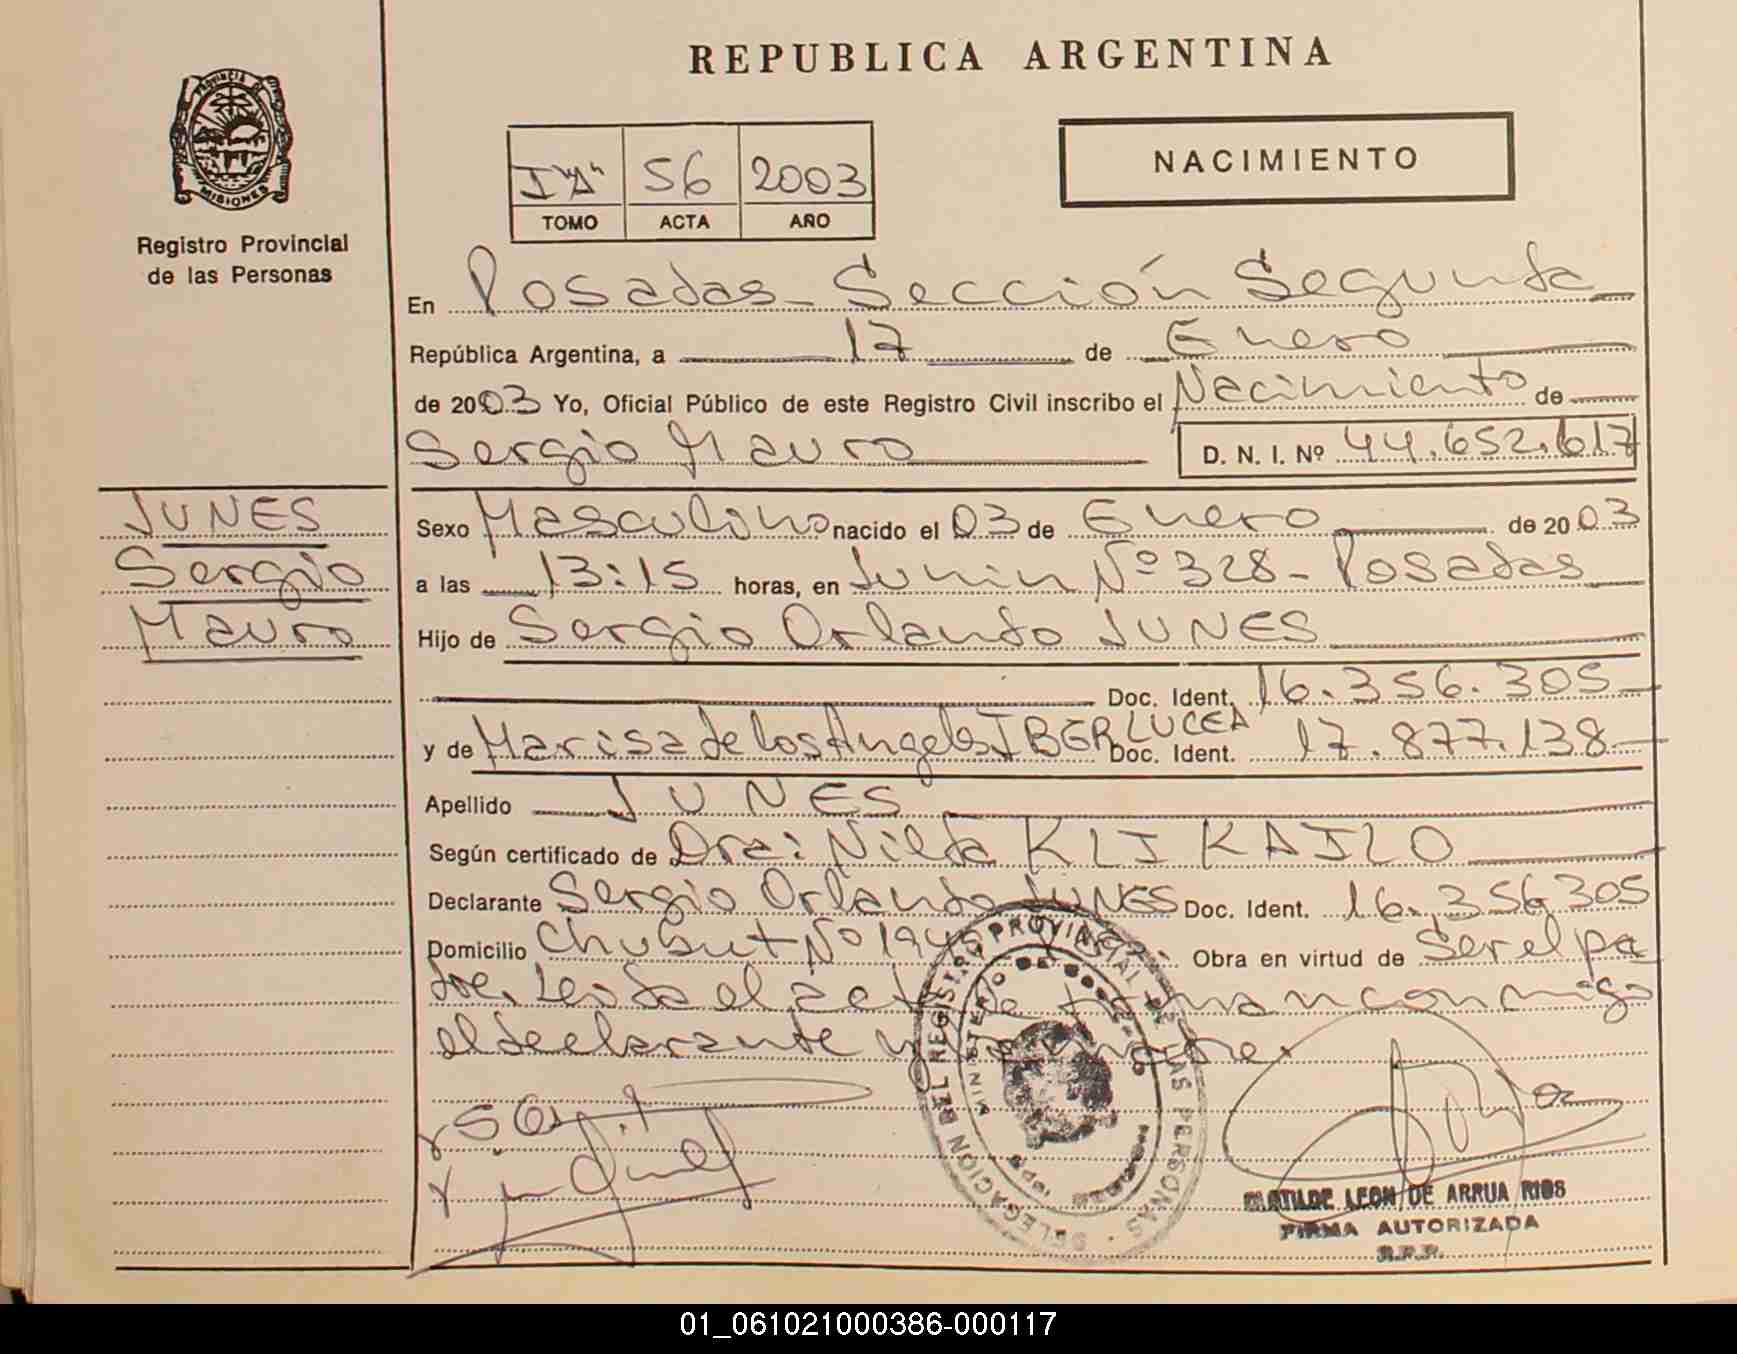 REPUBLICA ARGENTINA
PROVINCIA DE
MISIONES
Registro Provincial
de las Personas
NACIMIENTO
I "A" 56 2003
TOMO ACTA AÑO
En Posadas - Sección Segunda
República Argentina, a 17 de Enero
de 2003 Yo, Oficial Público de este Registro Civil inscribo el Nacimiento de
Sergio Mauro D. N. I. Nº 44.652.617
JUNES
Sergio
Mauro
Sexo Masculino nacido el 03 de Enero de 2003
a las 13:15 horas, en Junin Nº 328 - Posadas
Hijo de Sergio Orlando JUNES
Doc. Ident. 16.356.305
y de Marisa de los Angeles IBERLUCEA Doc. Ident. 17.877.138
Apellido JUNES
Según certificado de Dra: Nilda KLIKAILO
Declarante Sergio Orlando JUNES Doc. Ident. 16.356.305
Domicilio Chubut Nº 1945 Obra en virtud de Ser el pa
dre. Leida el acta firman conmigo
el declarante y la madre.
DELEGACION DEL REGISTRO PROVINCIAL DE LAS PERSONAS
MINISTERIO DE GOBIERNO
MATILDE LEON DE ARRUA RIOS
FIRMA AUTORIZADA
R.P.P.
01_061021000386-000117